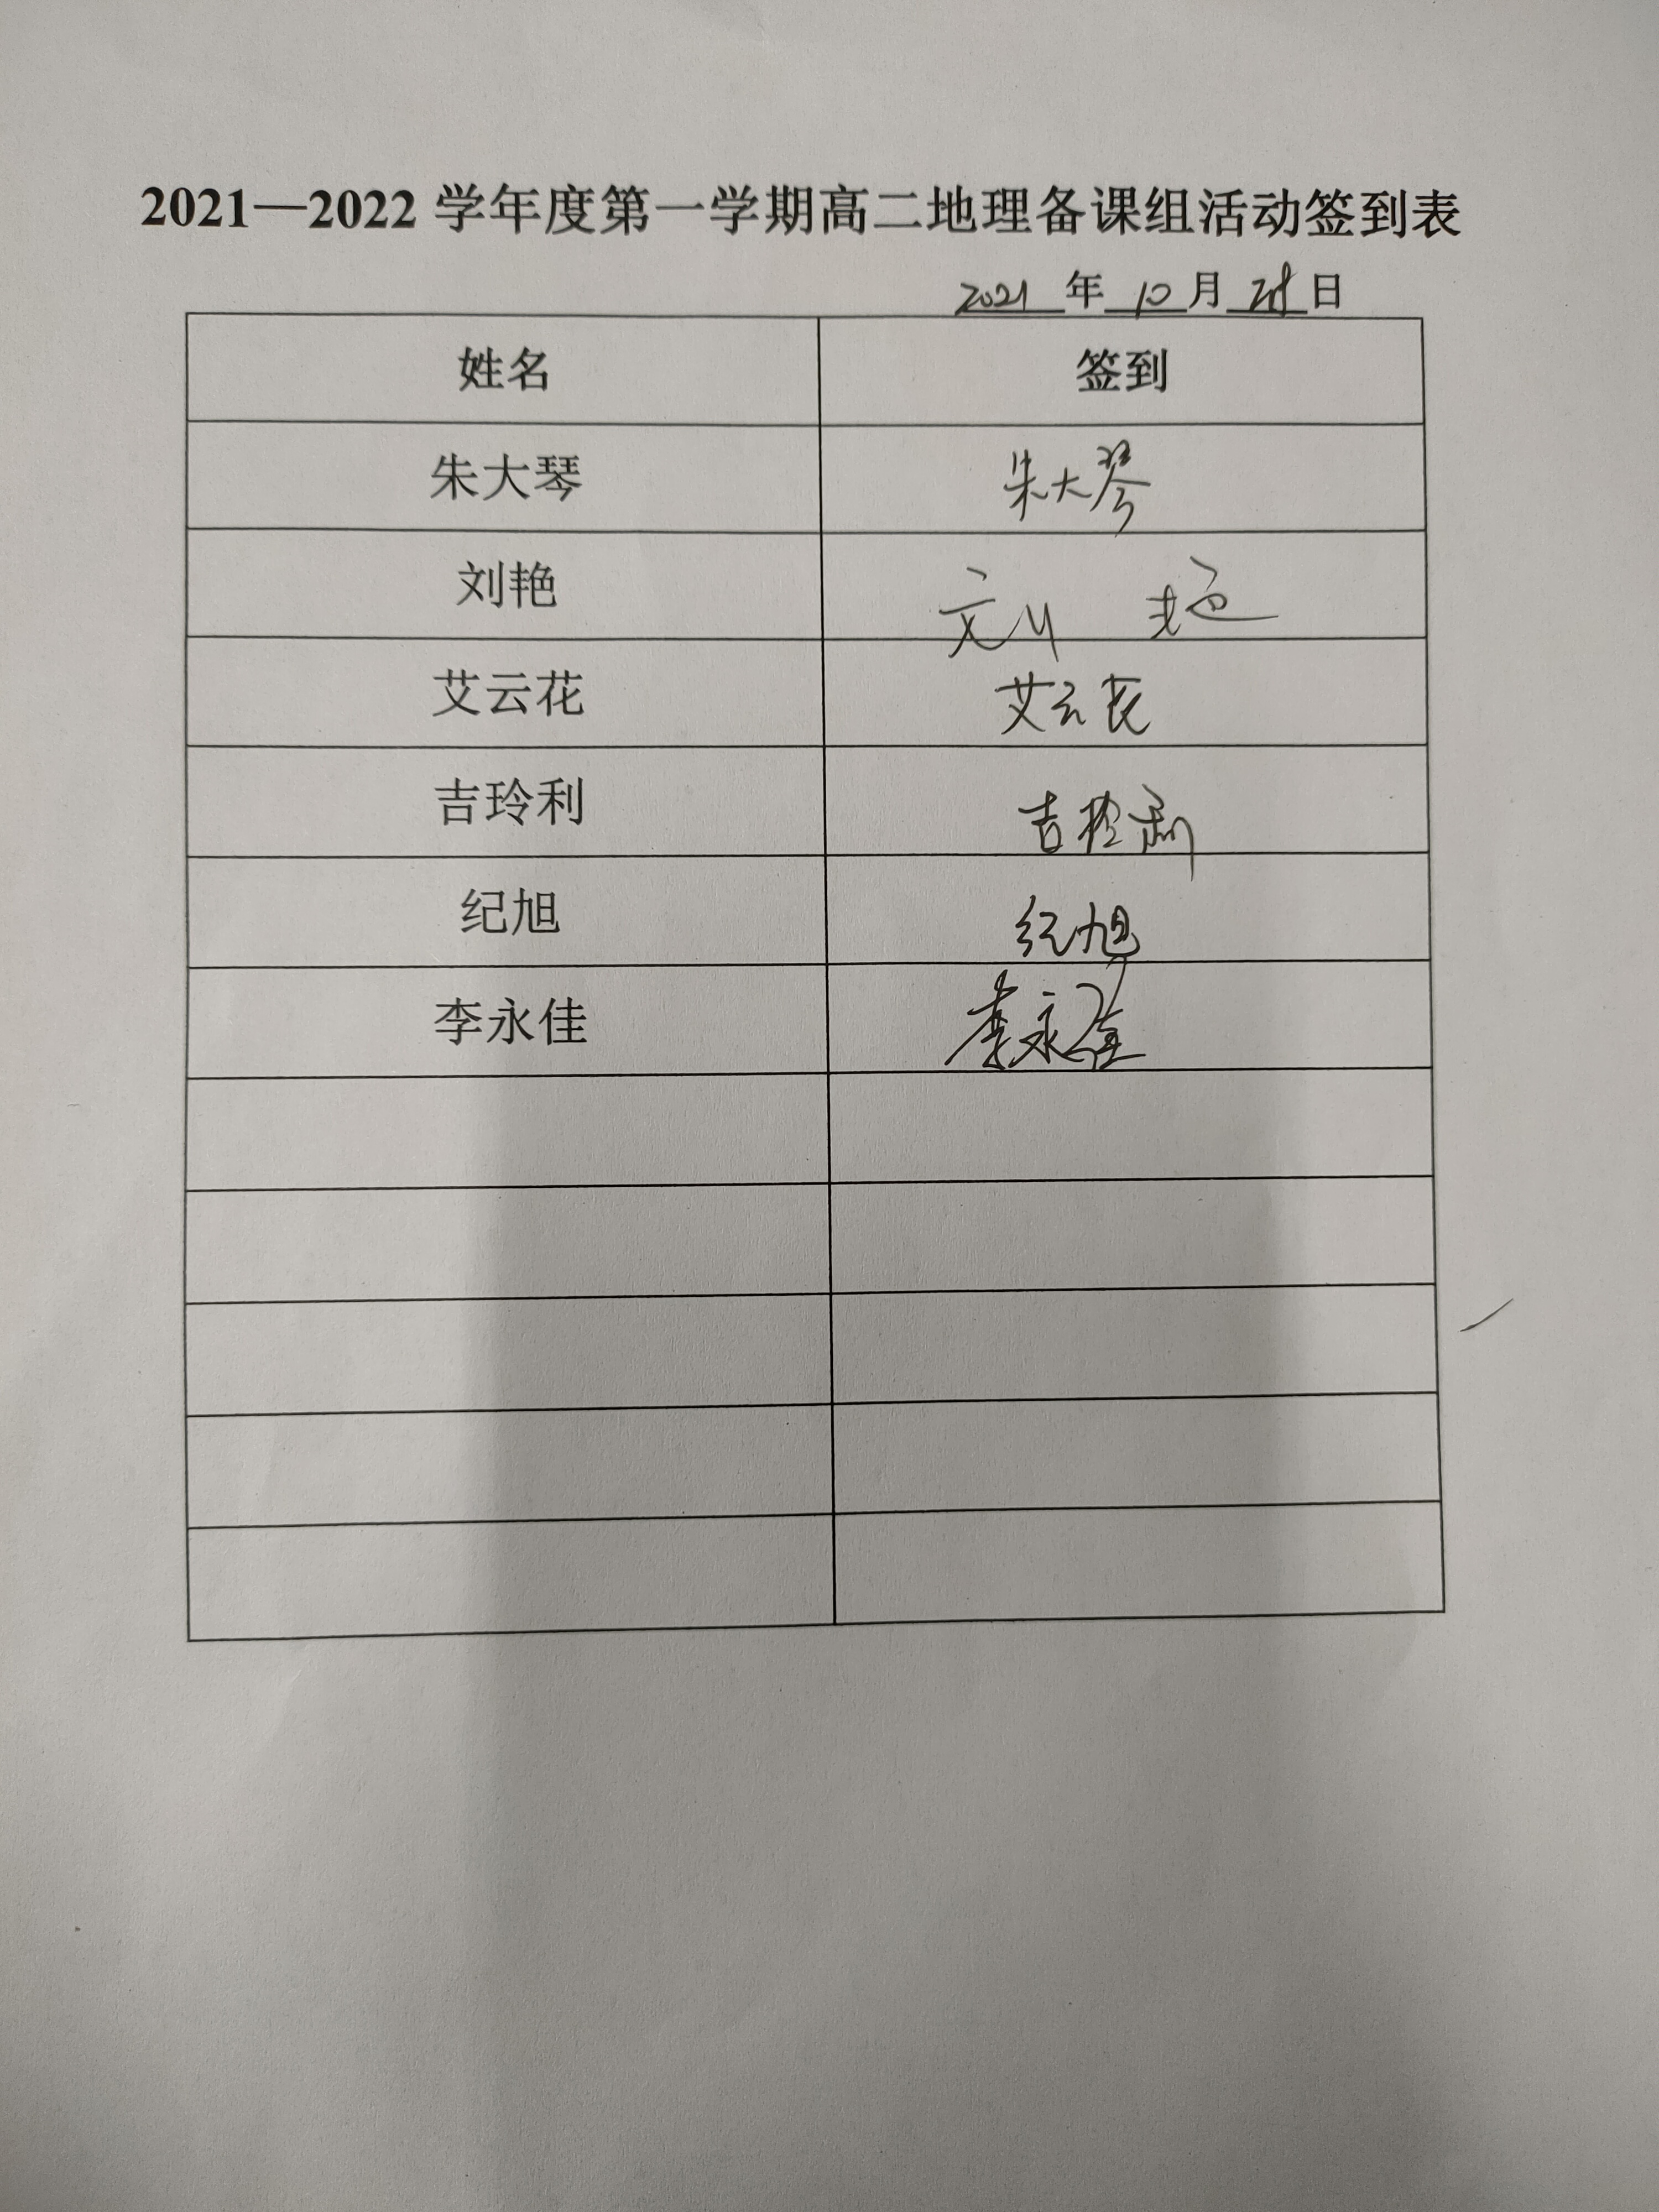 2021—2022 学年度第一学期高二地理备课组活动签到表
2021 年 10 月 28 日
姓名 签到
朱大琴 朱大琴
刘艳 刘艳
艾云花 艾云花
吉玲利 吉玲利
纪旭 纪旭
李永佳 李永佳